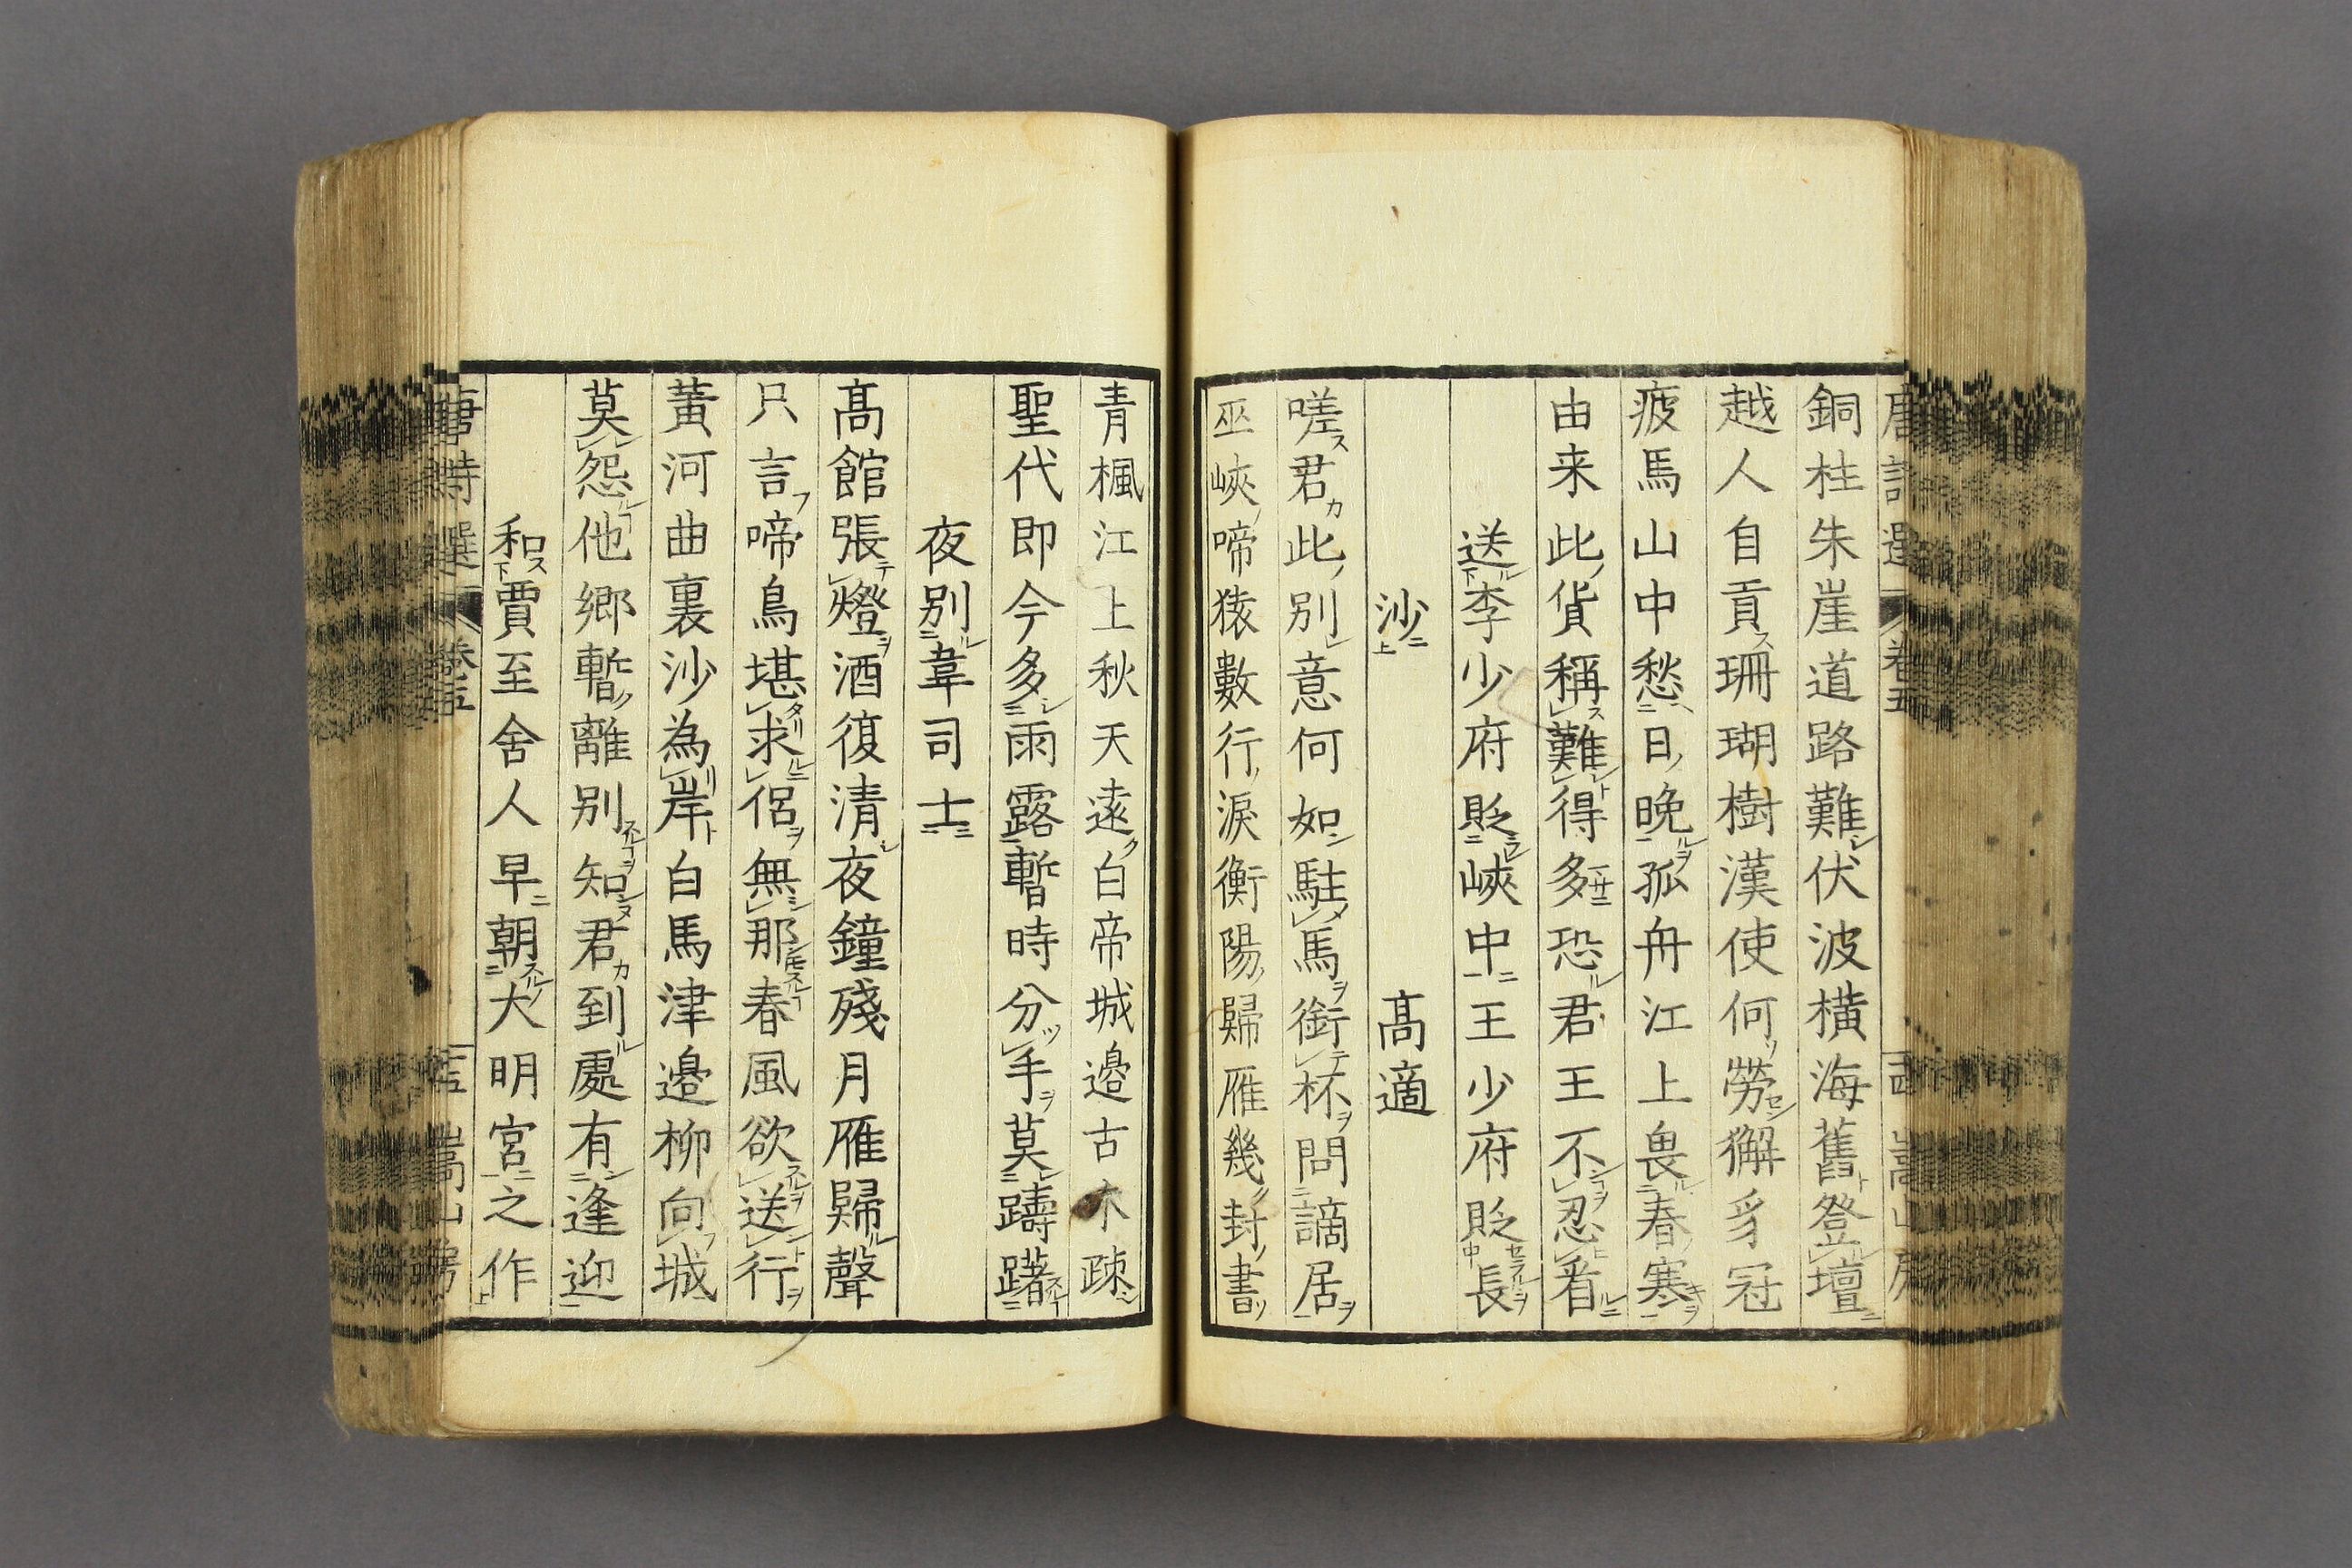 唐詩選 卷五
銅柱朱崖道路難伏波橫海舊登壇
越人自貢珊瑚樹漢使何勞獬豸冠
疲馬山中愁日晚孤舟江上畏春寒
由来此貨稱難得多恐君王不忍看
送李少府貶峽中王少府貶長
沙
高適
嗟君此別意何如駐馬銜杯問謫居
巫峽啼猿數行淚衡陽歸雁幾封書
青楓江上秋天遠白帝城邊古木疎
聖代即今多雨露暫時分手莫躊躇
夜別韋司士
高館張燈酒復清夜鐘殘月雁歸聲
只言啼鳥堪求侶無那春風欲送行
黃河曲裏沙為岸白馬津邊柳向城
莫怨他鄉暫離別知君到處有逢迎
和賈至舍人早朝大明宮之作
唐詩選 卷五